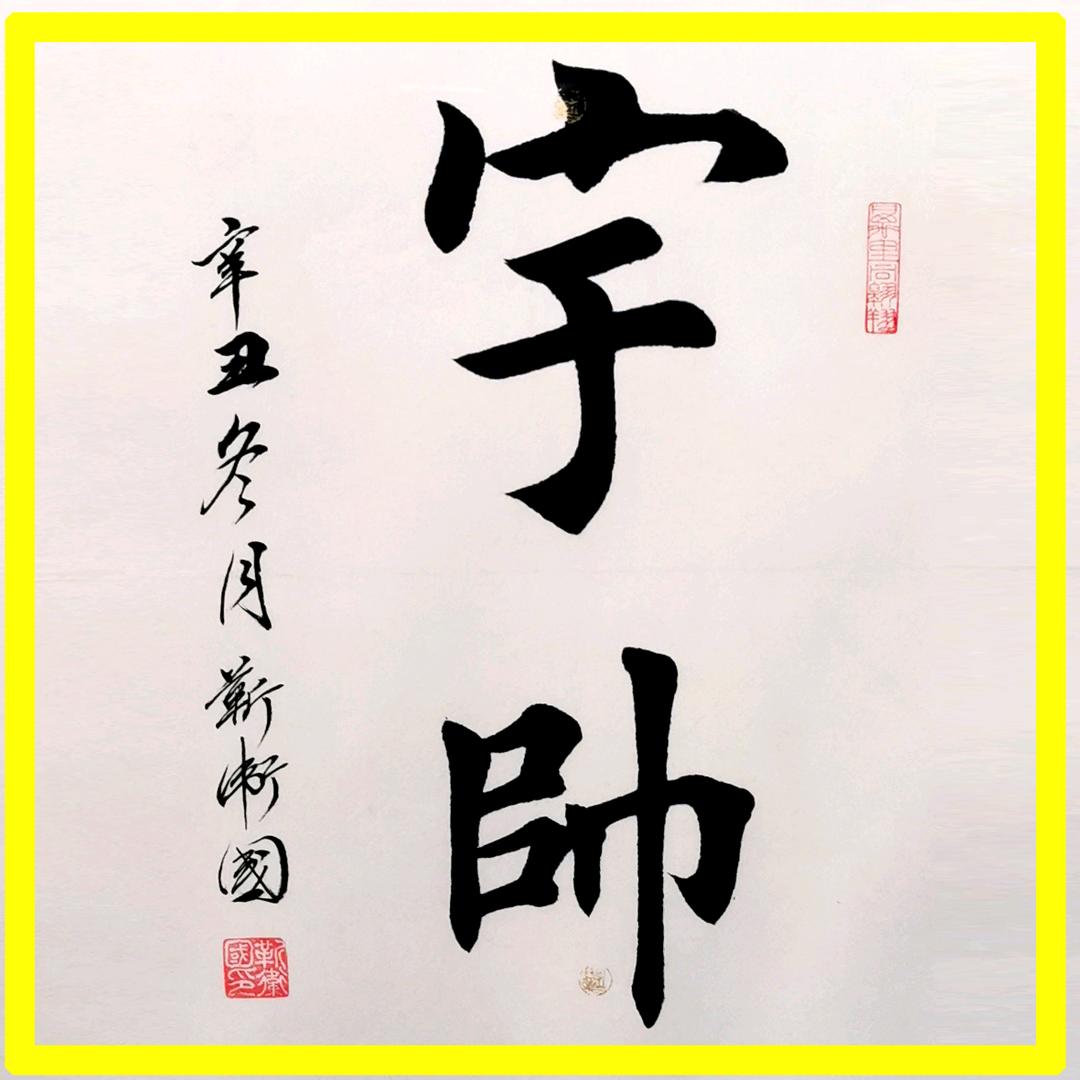 宇帥
辛丑冬月靳衛國
靳衛國印